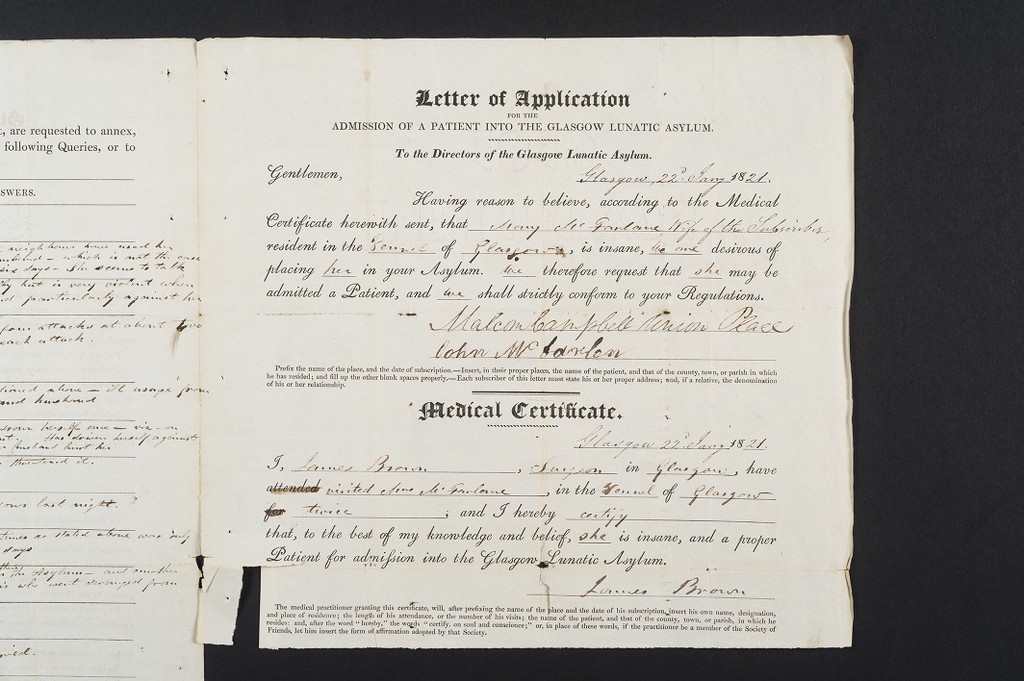 t, are requested to annex,
following Queries, or to
SWERS.
neighbours have used her
which is not the case
days - she seems to talk
but is very violent when
particularly against her
attacks at about two
each attack.
above - ill usage from
husband
herself once -
Has driven herself against
husband
threatened it.
last night.
times as stated above was only
days
the Asylum - and another
who went deranged from
Letter of Application
FOR THE
ADMISSION OF A PATIENT INTO THE GLASGOW LUNATIC ASYLUM.
To the Directors of the Glasgow Lunatic Asylum.
Gentlemen,
Glasgow, 22d. Jany 1821.
Having reason to believe, according to the Medical
Certificate herewith sent, that Mary McFarlane Wife of the Subscriber,
resident in the Tennel of Glasgow, is insane, we are desirous of
placing her in your Asylum. We therefore request that she may be
admitted a Patient, and we shall strictly conform to your Regulations.
Malcom Campbell Union Place
John McFarlon
Prefix the name of the place, and the date of subscription.—Insert, in their proper places, the name of the patient, and that of the county, town, or parish in which
he has resided; and fill up the other blank spaces properly.—Each subscriber of this letter must state his or her proper address; and, if a relative, the denomination
of his or her relationship.
Medical Certificate.
Glasgow 22d. Jany 1821.
I, James Brown, Surgeon in Glasgow, have
attended visited Mrs McFarlane, in the Tennel of Glasgow
for twice; and I hereby certify
that, to the best of my knowledge and belief, she is insane, and a proper
Patient for admission into the Glasgow Lunatic Asylum.
James Brown
The medical practitioner granting this certificate, will, after prefixing the name of the place and the date of his subscription, insert his own name, designation,
and place of residence; the length of his attendance, or the number of his visits; the name of the patient, and that of the county, town, or parish, in which he
resides: and, after the word "hereby," the words "certify, on soul and conscience;" or, in place of these words, if the practitioner be a member of the Society of
Friends, let him insert the form of affirmation adopted by that Society.